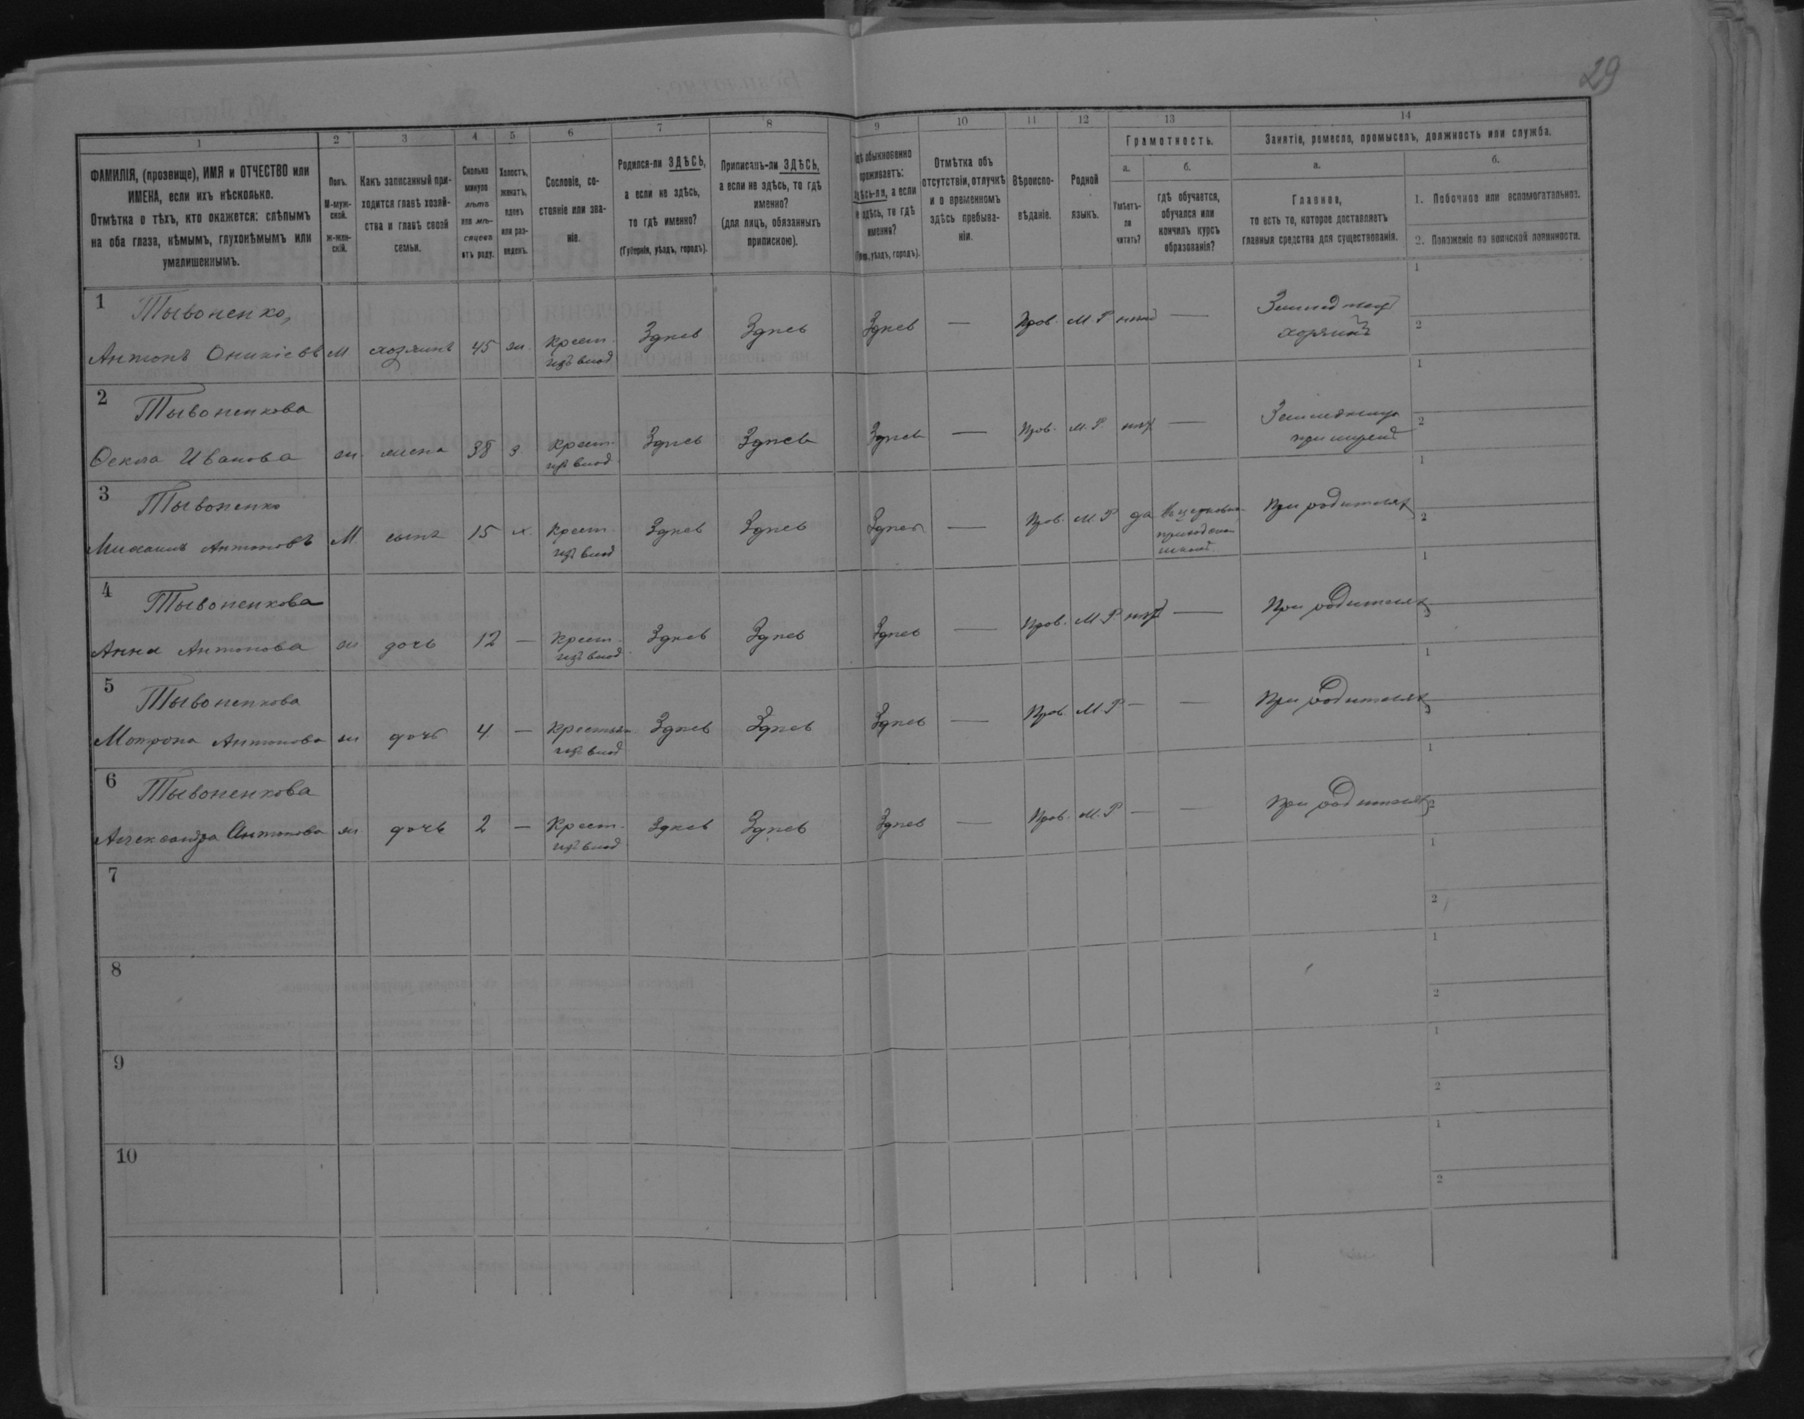 29
1 2 3 4 5 6 7 8 9 10 11 12 13 14
ФАМИЛІЯ, (прозвище), ИМЯ и ОТЧЕСТВО или
ИМЕНА, если ихъ нѣсколько.
Отмѣтка о тѣхъ, кто окажется: слѣпымъ
на оба глаза, нѣмымъ, глухонѣмымъ или
умалишеннымъ.
Полъ.
М-муж-
ской.
Ж-жен-
скій.
Какъ записанный при-
ходится главѣ хозяй-
ства и главѣ своей
семьи.
Сколько
минуло
лѣтъ
или мѣ-
сяцевъ
отъ роду.
Холостъ,
женатъ,
вдовъ
или раз-
веденъ.
Сословіе, со-
стояніе или зва-
ніе.
Родился-ли ЗДѢСЬ,
а если не здѣсь,
то гдѣ именно?
(Губернія, уѣздъ, городъ).
Приписанъ-ли ЗДѢСЬ,
а если не здѣсь, то гдѣ
именно?
(для лицъ, обязанныхъ
припискою).
обыкновенно
проживаетъ:
здѣсь-ли, а если
не здѣсь, то гдѣ
именно?
уѣздъ, городъ).
Отмѣтка объ
отсутствіи, отлучкѣ
и о временномъ
здѣсь пребыва-
ніи.
Вѣроиспо-
вѣданіе.
Родной
языкъ.
Грамотность.
а. б.
Умѣетъ-
ли
читать?
гдѣ обучается,
обучался или
кончилъ курсъ
образованія?
Занятіе, ремесло, промыселъ, должность или служба.
а. б.
Главное,
то есть то, которое доставляетъ
главныя средства для существованія.
1. Побочное или вспомогательное.
2. Положеніе по воинской повинности.
1 Тывоненко,
Антонъ Оникіевъ М хозяинъ 45 ж. Крест. Здпсь Здпсь Здпсь — Прав. М. Р. —
изъ влад
хозяинъ
1
2
2 Тывоненкова
Ѳекла Иванова ж жена 38 з Крест. Здпсь Здпсь Здпсь — Прав. М. Р. —
изъ влад
1
2
3 Тывоненко
Михаилъ Антоновъ М сынъ 15 х. Крест. Здпсь Здпсь Здпсь — Прав. М Р да При родителях
изъ влад
1
2
4 Тывоненкова
Анна Антонова ж дочь 12 — Крест. Здпсь Здпсь Здпсь — Прав. М. Р — При родителях
изъ влад
1
2
5 Тывоненкова
Мотрона Антонова ж дочь 4 — Здпсь Здпсь Здпсь — Прав М. Р — — При родителях
изъ влад
1
2
6 Тывоненкова
Александра Антонова ж дочь 2 — Крест. Здпсь Здпсь Здпсь — Прав. М. Р — — При родителях
изъ влад
1
2
7
1
2
8
1
2
9
1
2
10
1
2